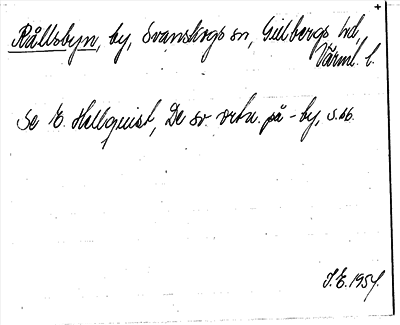 Rållsbyn, by, Svanskogs sn, Gillbergs hd,
Värml. l.
Se E. Hellquist, De sv. ortn. på -by, s. 66.
J.E. 1954.